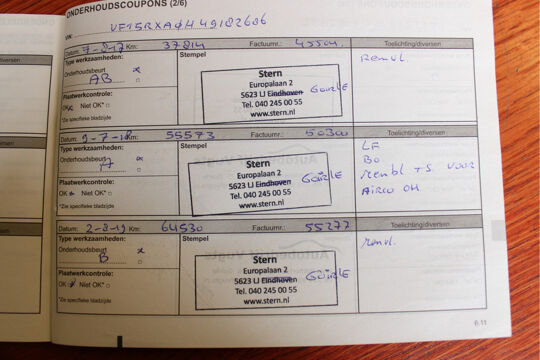 ONDERHOUDSCOUPONS (2/6)
VIN:
Datum: 7-8-17 Km: 37814 Factuurnr.: 45504 Toelichting/diversen
Type werkzaamheden: Stempel
Onderhoudsbeurt
AB
Plaatwerkcontrole:
OK Niet OK*
*Zie specifieke bladzijde
Stern
Europalaan 2
5623 LJ Eindhoven
Tel. 040 245 00 55
www.stern.nl
Datum: 9-7-18 Km: 55573 Factuurnr.: 50300 Toelichting/diversen
Type werkzaamheden: Stempel
Onderhoudsbeurt
A
Plaatwerkcontrole:
OK Niet OK*
*Zie specifieke bladzijde
Stern
Europalaan 2
5623 LJ Eindhoven
Tel. 040 245 00 55
www.stern.nl
LF
BO
VOOR
AIRCO OH
Datum: 2-8-19 Km: 64530 Factuurnr.: 55277 Toelichting/diversen
Type werkzaamheden: Stempel
Onderhoudsbeurt
B
Plaatwerkcontrole:
OK Niet OK*
*Zie specifieke bladzijde
Stern
Europalaan 2
5623 LJ Eindhoven
Tel. 040 245 00 55
www.stern.nl
6.11